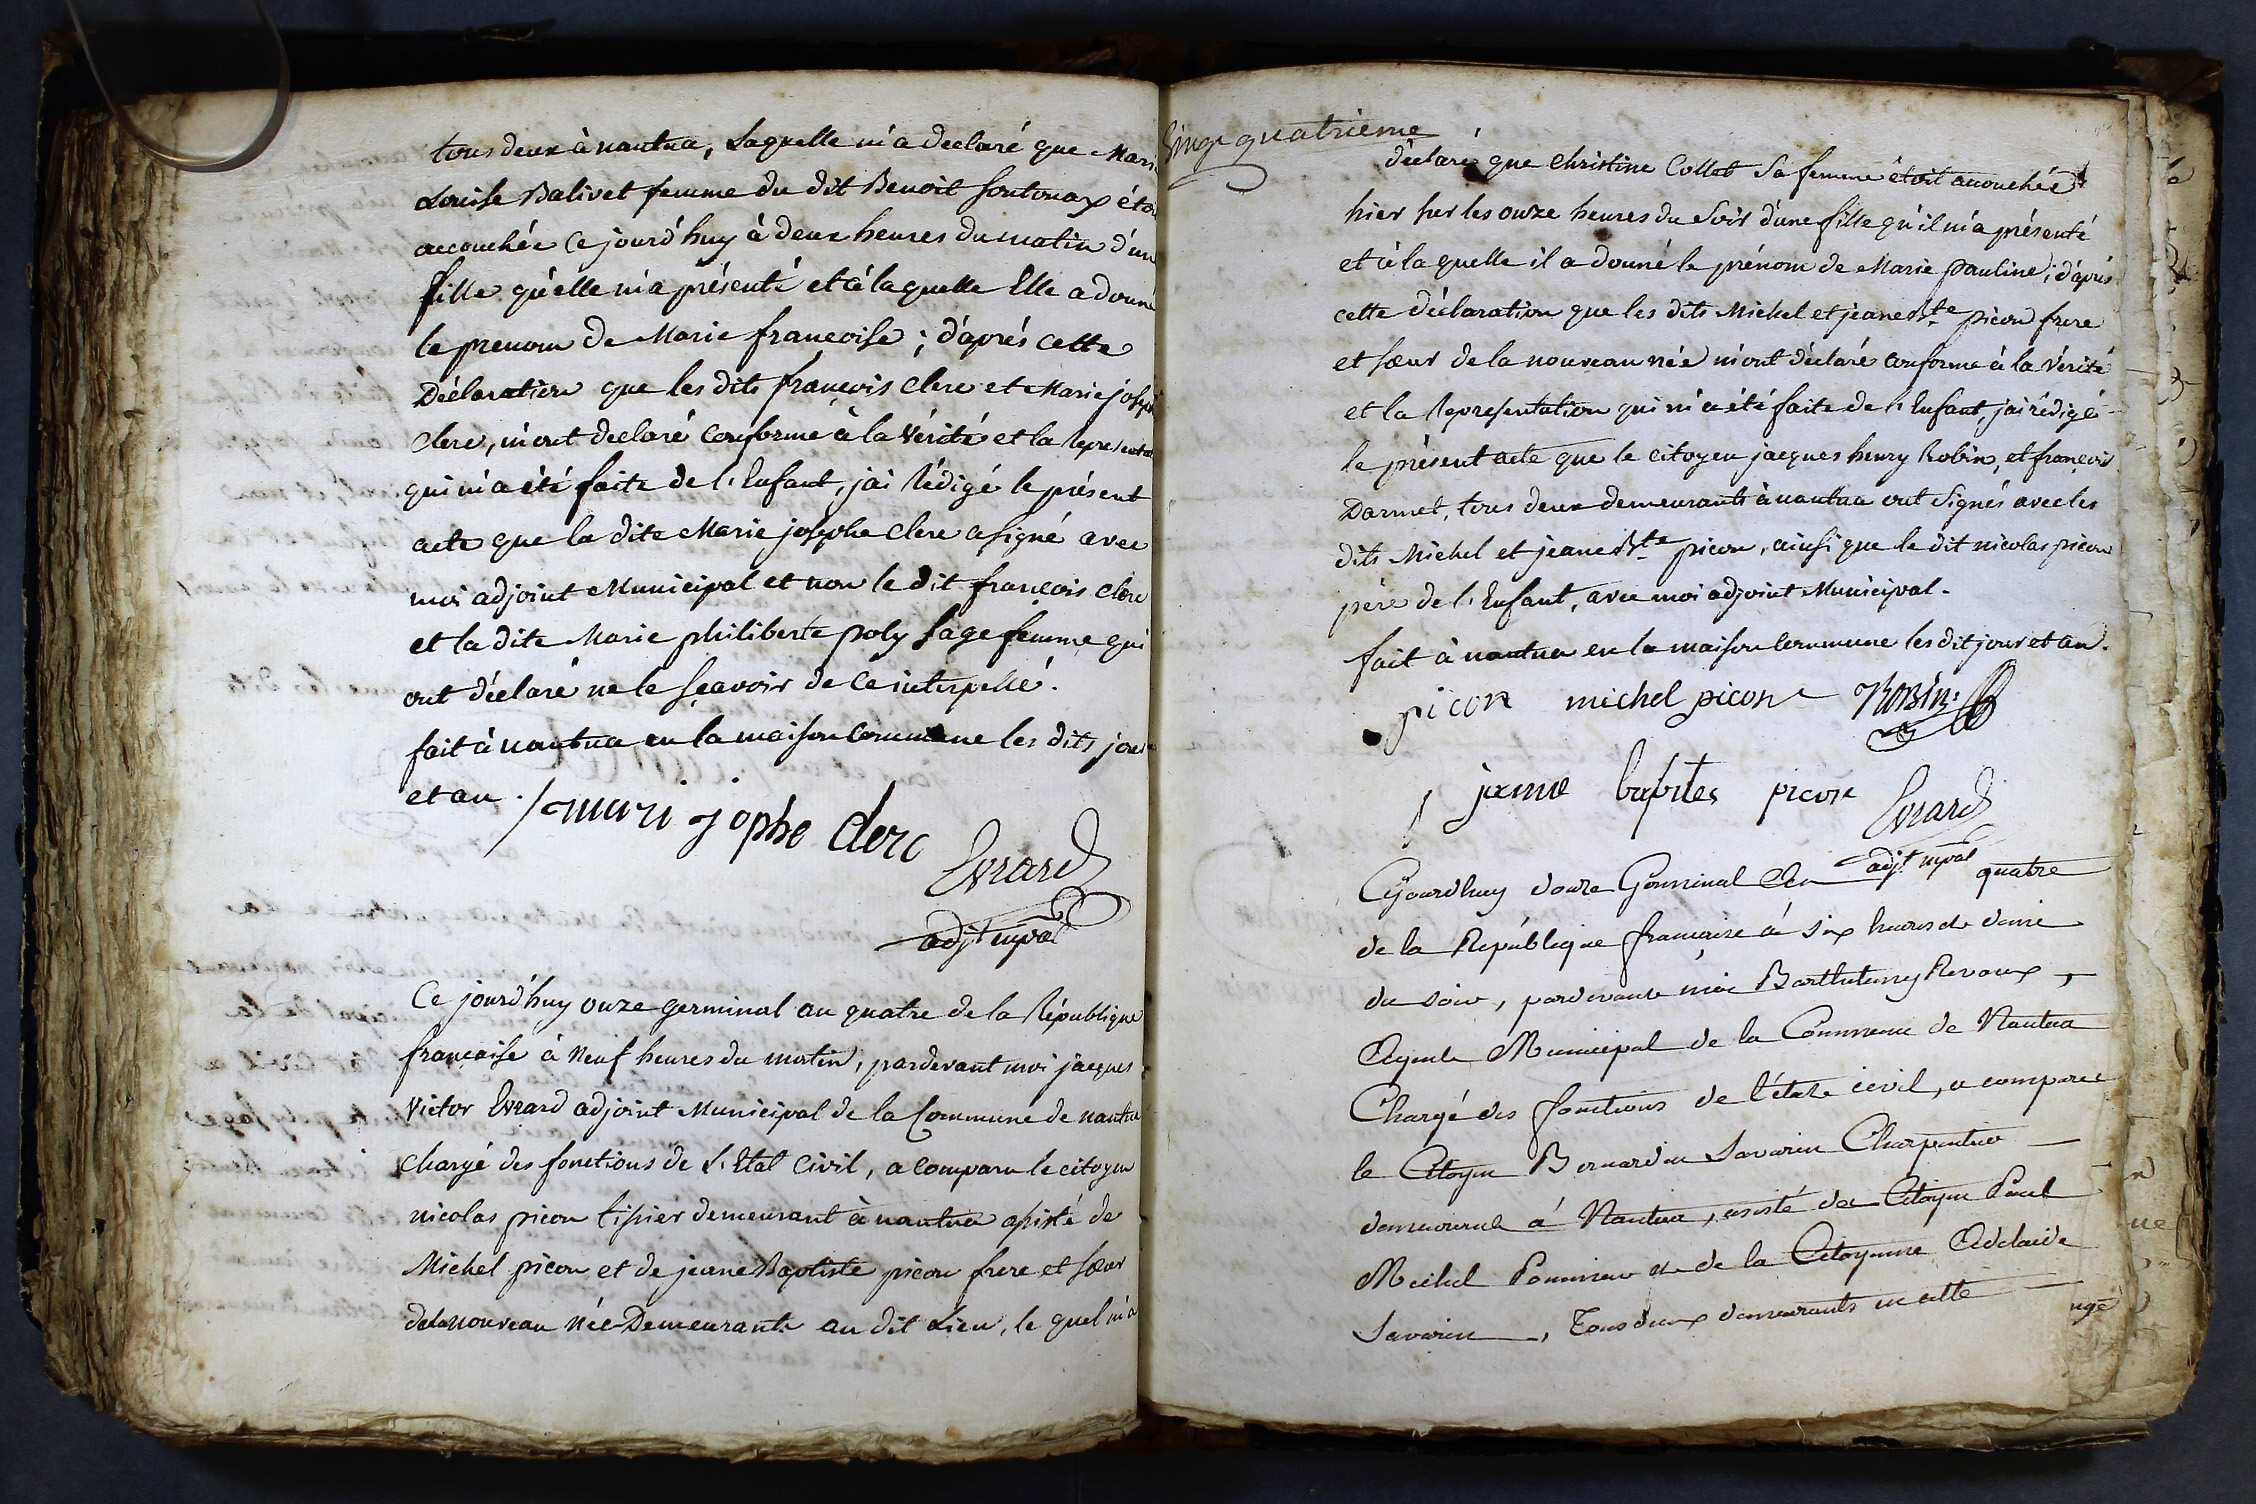 tous deux à nantua, Laquelle m'a declaré que Mari
Louise Balivet femme du dit Benoit Sontonax étoi
accouchée Ce jourd'huy à deux heures du matin d'un
fille qu'elle m'a présenté et à laquelle Elle a donné
le prenom de Marie françoise; d'après cette
Déclaration que les dits françois Clerc et Marie joseph
Clerc, m'ont declaré Conforme à la Vérité et la Represent
qui m'a été faite de l'Enfant, j'ai Rédigé le présent
acte que la dite Marie josephe Clerc a signé avec
moi adjoint Municipal et non le dit françois Clerc
et la dite Marie philiberte poly sage femme qui
ont déclaré ne le sçavoir de Ce interpellé.
fait à nantua en la maison Commune les dits jour
et an.
mari jophe clerc
Evrard
adjt mpal
Ce jourd'huy onze germinal an quatre de la République
française à Neuf heures du matin, pardevant moi jacques
Victor Evrard adjoint Municipal de la Commune de nantua
chargé des fonctions de L'Etat Civil, a Comparu le citoyen
nicolas picon tissier demeurant à nantua assisté de
Michel picon et de jeane Baptiste picon frere et sœur
de la nouveau née Demeurants au dit Lieu, le quel m'a
Vingt quatrieme
déclaré que Christine Collet Sa femme étoit accouchée
hier sur les onze heures du Soir d'une fille qu'il m'a présenté
et à la quelle il a donné le prénom de Marie pauline; d'après
cette déclaration que les dits Michel et jeane Bte picon frere
et sœur de la nouveau née m'ont déclaré conforme à la Vérité
et la Representation qui m'a été faite de l'Enfant, j'ai rédigé
le présent acte que le citoyen jacques henry Robin, et françois
Darmet, tous deux demeurants à nantua ont Signés avec les
dits Michel et jeane Bte picon, ainsi que le dit nicolas picon
père de l'Enfant, avec moi adjoint Municipal.
fait à nantua en la maison Commune les dit jour et an.
picon michel picon ROBIN
janne baptites picon Evrard
adjt mpal
Cejourdhuy douze Germinal An quatre
de la République française à six heures et demie
du soir, pardevant moi Barthelemy Revoux,
Agent Municipal de la Commune de Nantua
Chargé des fonctions de l'état civil, a comparu
le Citoyen Bernardin Savarin Charpentier
demeurant à Nantua, assisté du Citoyen Paul
Michel Pommier et de la Citoyenne Adelaide
Savarin, Tous deux demeurants en cette